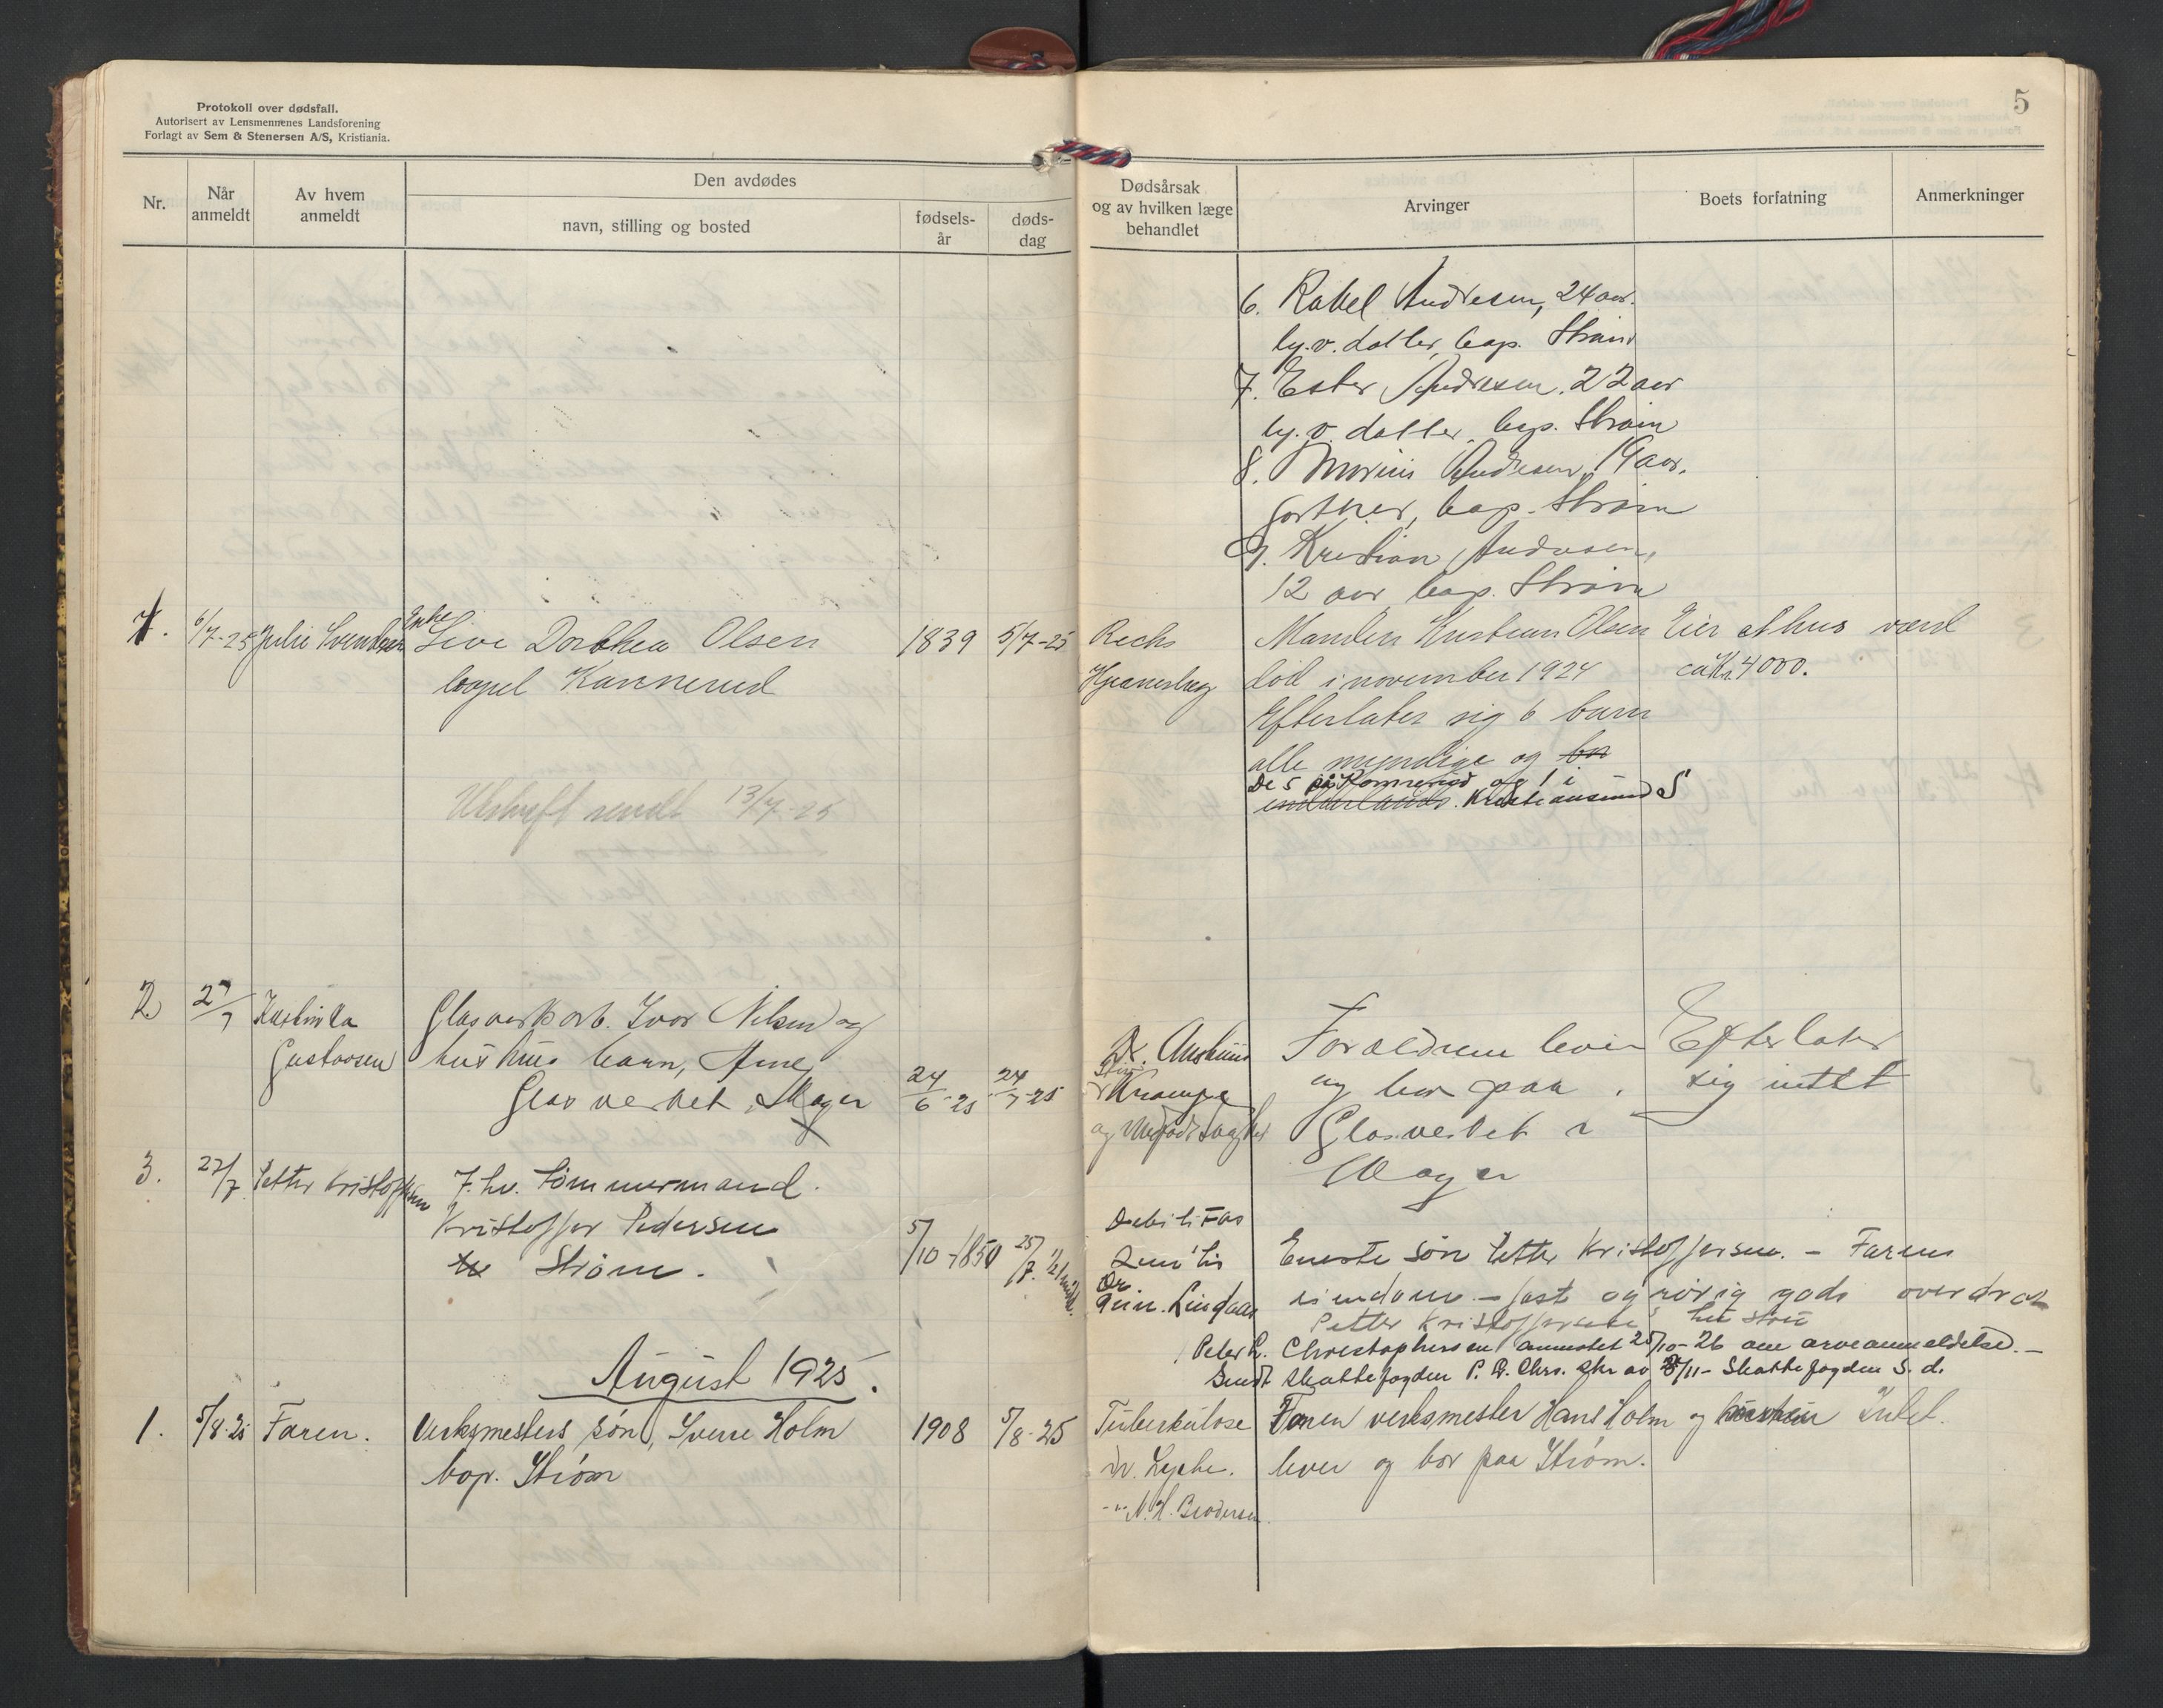 Protokoll over dødsfall.
Autorisert av Lensmennenes Landsforening
Forlagt av Sem & Stenersen A/S, Kristiania.
5
Nr.
Når anmeldt
Av hvem anmeldt
Den avdødes
navn, stilling og bosted
fødsels-år
døds-dag
Dødsårsak og av hvilken læge behandlet
Arvinger
Boets forfatning
Anmerkninger
6. Rakel Andresen, 24 aar.
ug. v. datter, bop. Strøm
7. Ester Andresen. 22 aar
ug. v. datter, bop. Strøm
8. Marius Andresen, 19 aar.
gartner, bop. Strøm
9. Kristian Andresen,
12 aar bop. Strøm
1. 6/7-25 Julie Svendsen Enke Live Dorthea Olsen 1839 5/7-25 Manden Kristian Olsen Eier et hus værd
bopæl Konnerud død i november 1924 ca Kr. 4000.
Efterlater sig 6 barn
alle myndige og bor
De 5 på Konnerud og 1 i
indenlands. Kristiansund S
Utskrift sendt 13/7-25
2. 27/7
Gustavsen
Glasverksarb. Ivar Nilsen og
hustrus barn, Arne,
Glasverket, Skoger 24/6-25 24/7-25
Dr.
Krampe
og
Forældrene lever Efterlater
og bor paa sig intet
Glasverket i
Skoger
3. 27/7 Petter Kristoffersen F. hv. Tømmermand.
Kristoffer Pedersen
Strøm. 5/10-1850 25/7.
Debilitas
Senilis
Dr
Lindaas
Eneste søn Petter Kristoffersen. - Farens
eiendom - fast og rørig gods overdrat
Petter Kristoffersen
Peter L. Christophersen anmodet 25/10-26 om arveanmeldelse. -
Sendt skattefogden P. L. Chrs. skr av 8/11- Skattefogden S. d.
August 1925.
1. 5/8-25 Faren. Verksmesters søn, Sverre Holm 1908 5/8-25 Tuberkulose Faren verksmester Hans Holm og hustru Intet.
bop. Strøm dr. Lyche. lever og bor paa Strøm.
-"- N. H. Brodersen.